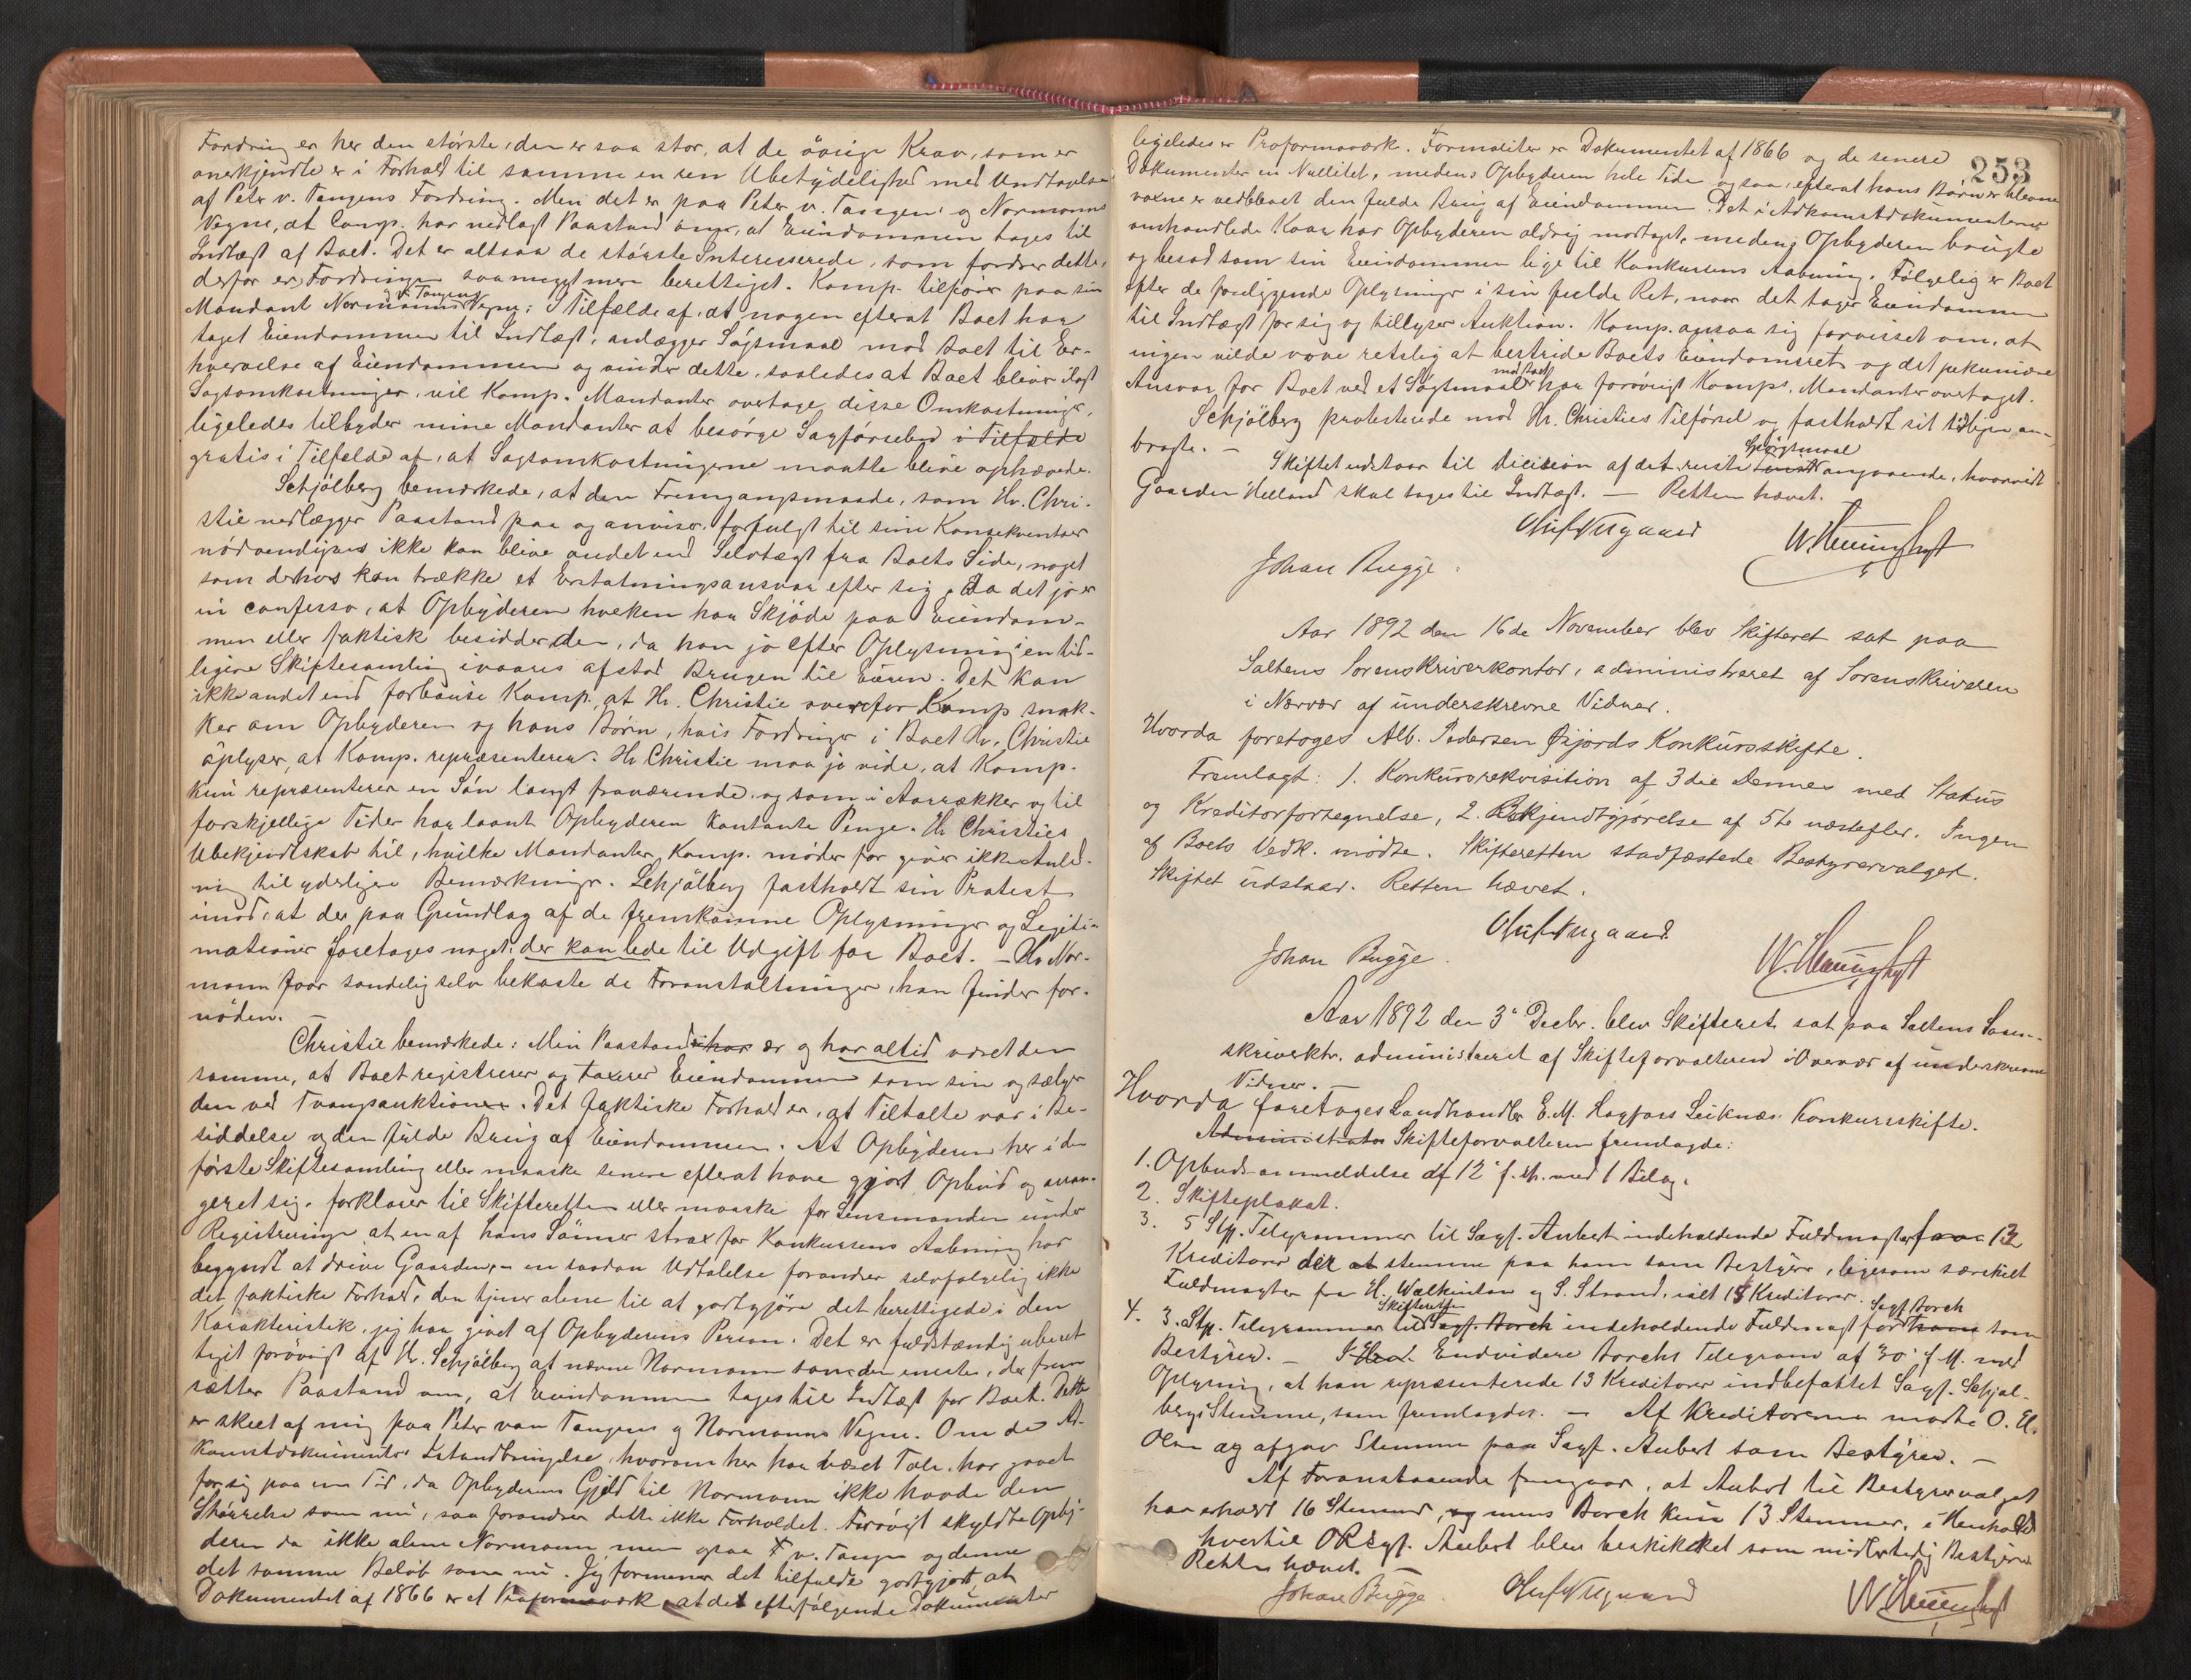 Fordring er her den største, den er saa stor, at de øvrige Krav, som er
anerkjendte er i Forhold til samme en ren Ubetydelighed med Undtagelse
af Peter v. Tangens Fordring. Men det er paa Peter v. Tangens og Normanns
Vegne, at Comp. har nedlagt Paastand om, at Eiendommen tages til
Indtægt af Boet. Det er altsaa de største Interesserede, som fordrer dette,
derfor er Fordringen saa meget mere berettiget. Komp. tilføier paa sin
Mandant Normanns og v. Tangens Vegne: I Tilfælde af, at nogen efterat Boet har
taget Eiendommen til Indtægt, anlægger Søgsmaal mod Boet til Er-
hvervelse af Eiendommen og vinder dette, saaledes at Boet bliver ilagt
Sagsomkostninger, vil Komp. Mandanter overtage disse Omkostninger,
ligeledes tilbyder mine Mandanter at besørge Sagførselen i Tilfælde
gratis i Tilfælde af, at Sagsomkostningerne maatte blive ophævede.
Schjølberg bemærkede, at den Fremgangsmaade, som Hr. Chri-
stie nedlægger Paastand paa og anviser, forfulgt til sine Konsekventser
nødvendigvis ikke kan blive andet end Selvtægt fra Boets Side, noget
som derhos kan trække et Erstatningsansvar efter sig, da det jo er
in confesso, at Opbyderen hverken har Skjøde paa Eiendom-
men eller faktisk besidder den, da han jo efter Oplysning i en tid-
ligere Skiftesamling ivaares afstod Brugen til Eieren. Det kan
ikke andet end forbause Komp., at Hr. Christie overfor Komp. snak-
ker om Opbyderen og hans Børn, hvis Fordringer i Boet Hr. Christie
oplyser, at Komp. repræsenterer. Hr Christie maa jo vide, at Komp.
kun repræsenterer en Søn langt fraværende, og som i Aarrækker og til
forskjellige Tider har laant Opbyderen kontante Penge. Hr Christies
Ubekjendtskab til, hvilke Mandanter Komp. møder for giver ikke Anled-
ning til yderligere Bemærkninger. Schjølberg fastholdt sin Protest
imod, at der paa Grundlag af de fremkomne Oplysninger og Legiti-
mationer foretages noget, der kan lede til Udgift for Boet. – Hr Nor-
mann faar sandelig selv bekoste de Foranstaltninger, han finder for-
nøden.
Christie bemærkede: Min Paastand har er og har altid været den
samme, at Boet registrerer og taxerer Eiendommen som sin og sælger
den ved Tvangsauktionen. Det faktiske Forhold er, at Tiltalte var i Be-
siddelse og den fulde Brug af Eiendommen. At Opbyderen her i den
første Skiftesamling eller maaske senere efterat have gjort Opbud og arran-
geret sig, forklarer til Skifteretten eller maaske for Lensmanden under
Registreringen at en af hans Sønner strax før Konkursens Aabning har
begyndt at drive Gaarden, – en saadan Udtalelse forandrer selvfølgelig ikke
det faktiske Forhold, den tjener alene til at godtgjøre det berettigede i den
Karakteristik, jeg har givet af Opbyderens Person. Det er fuldstændig uberet-
tiget forøvrigt af Hr. Schjølberg at nævne Normann som den eneste, der frem-
sætter Paastand om, at Eiendommen tages til Indtægt for Boet. Dette
er skeet af mig paa Peter van Tangens og Normanns Vegne. Om de Ad-
komstdokumenters Istandbringelse, hvorom her har været Tale, har gaaet
for sig paa en Tid, da Opbyderens Gjeld til Normann ikke havde den
Størrelse som nu, saa forandrer dette ikke Forholdet. Forøvrigt skyldte Opby-
deren da ikke alene Normann, men ogsaa P. v. Tangen og denne
det samme Beløb som nu. Jeg formener det tilfulde godtgjort, at
Dokumentet af 1866 er et Proformaværk, at det efterfølgende Dokumenter
253
ligeledes er Proformaværk. Formaliter er Dokumentet af 1866 og de senere
Dokumenter en Nullitet, medens Opbyderen hele Tiden ogsaa, efterat hans Børn er blevne
voxne er vedblevet den fulde Brug af Eiendommen. Det i Adkomstdokumenterne
omhandlede Kaar har Opbyderen aldrig modtaget, medens Opbyderen brugte
og besad som sin Eiendommen lige til Konkursens Aabning. Følgelig er Boet
efter de foreliggende Oplysninger i sin fulde Ret, naar det tager Eiendommen
til Indtægt for sig og tillyser Auktion. Komp. ansaa sig forvisset om, at
ingen vilde vove retslig at bestride Boets Eiendomsret og det pekuniære
Ansvar for Boet ved et Søgsmaal mod Boet har forøvrigt Komps. Mandanter overtaget.
Schjølberg protesterede mod Hr. Christies Tilførsel og fastholdt sit tidligere an-
bragte. –
Skiftet udstaar til Decision af det reiste Spørgsmaal angaaende, hvorvidt
Gaarden Helland skal tages til Indtægt. — Retten hævet.
Johan Bugge.
Aar 1892 den 16de November blev Skifteret sat paa
Saltens Sorenskriverkontor, administreret af Sorenskriveren
i Nærvær af underskrevne Vidner.
Hvorda foretoges Alb. Pedersen Øijords Konkursskifte.
Fremlagt: 1. Konkursrekvisition af 3die Dennes med Status
og Kreditorfortegnelse, 2. Bekjendtgjørelse af 5te næstefter. Ingen
af Boets Vedk. mødte. Skifteretten stadfæstede Bestyrervalget.
Skiftet udstaar. Retten hævet.
Johan Bugge.
Aar 1892 den 3' Decbr. blev Skifteret sat paa Saltens Soren-
skriverktr. administreret af Skifteforvalteren i Overvær af underskrevne
Vidner. —
Hvorda foretoges Landhandler E. M. Leiknæs Konkursskifte.
Administrator Skifteforvalteren fremlagde:
1. Opbudsanmeldelse af 12' f. M. med 1 Bilag.
2. Skifteplakat.
3. 5 Stp. Telegrammer til Sagf. Aubert indeholdende Fuldmagter fra 13
Kreditorer der at stemme paa ham som Bestyrer, ligesom særskilt
Fuldmagter fra H. Walkinton og S. Strand, ialt 15 Kreditorer.
4. 3. Stp. Telegrammer til Skifteretten Sagf. Borch indeholdende Fuldmagt for Sagf Borch ham som
Bestyrer. – Endvidere Borchs Telegram af 30' f. M. med
Oplysning, at han repræsenterede 13 Kreditorer indbefattet Sagf. Schjøl-
bergs Stemme, som fremlagdes. – Af Kreditorerne mødte O. El.
Olsen og afgav Stemme paa Sagf. Aubert som Bestyrer. –
Af Foranstaaende fremgaar, at Aubert til Bestyrervalget
har erholdt 16 Stemmer, og mens Borch kun 13 Stemmer, i Henhold
hvortil ORsgf. Aubert blev beskikket som midlertidig Bestyrer.
Retten hævet. –
Johan Bugge.